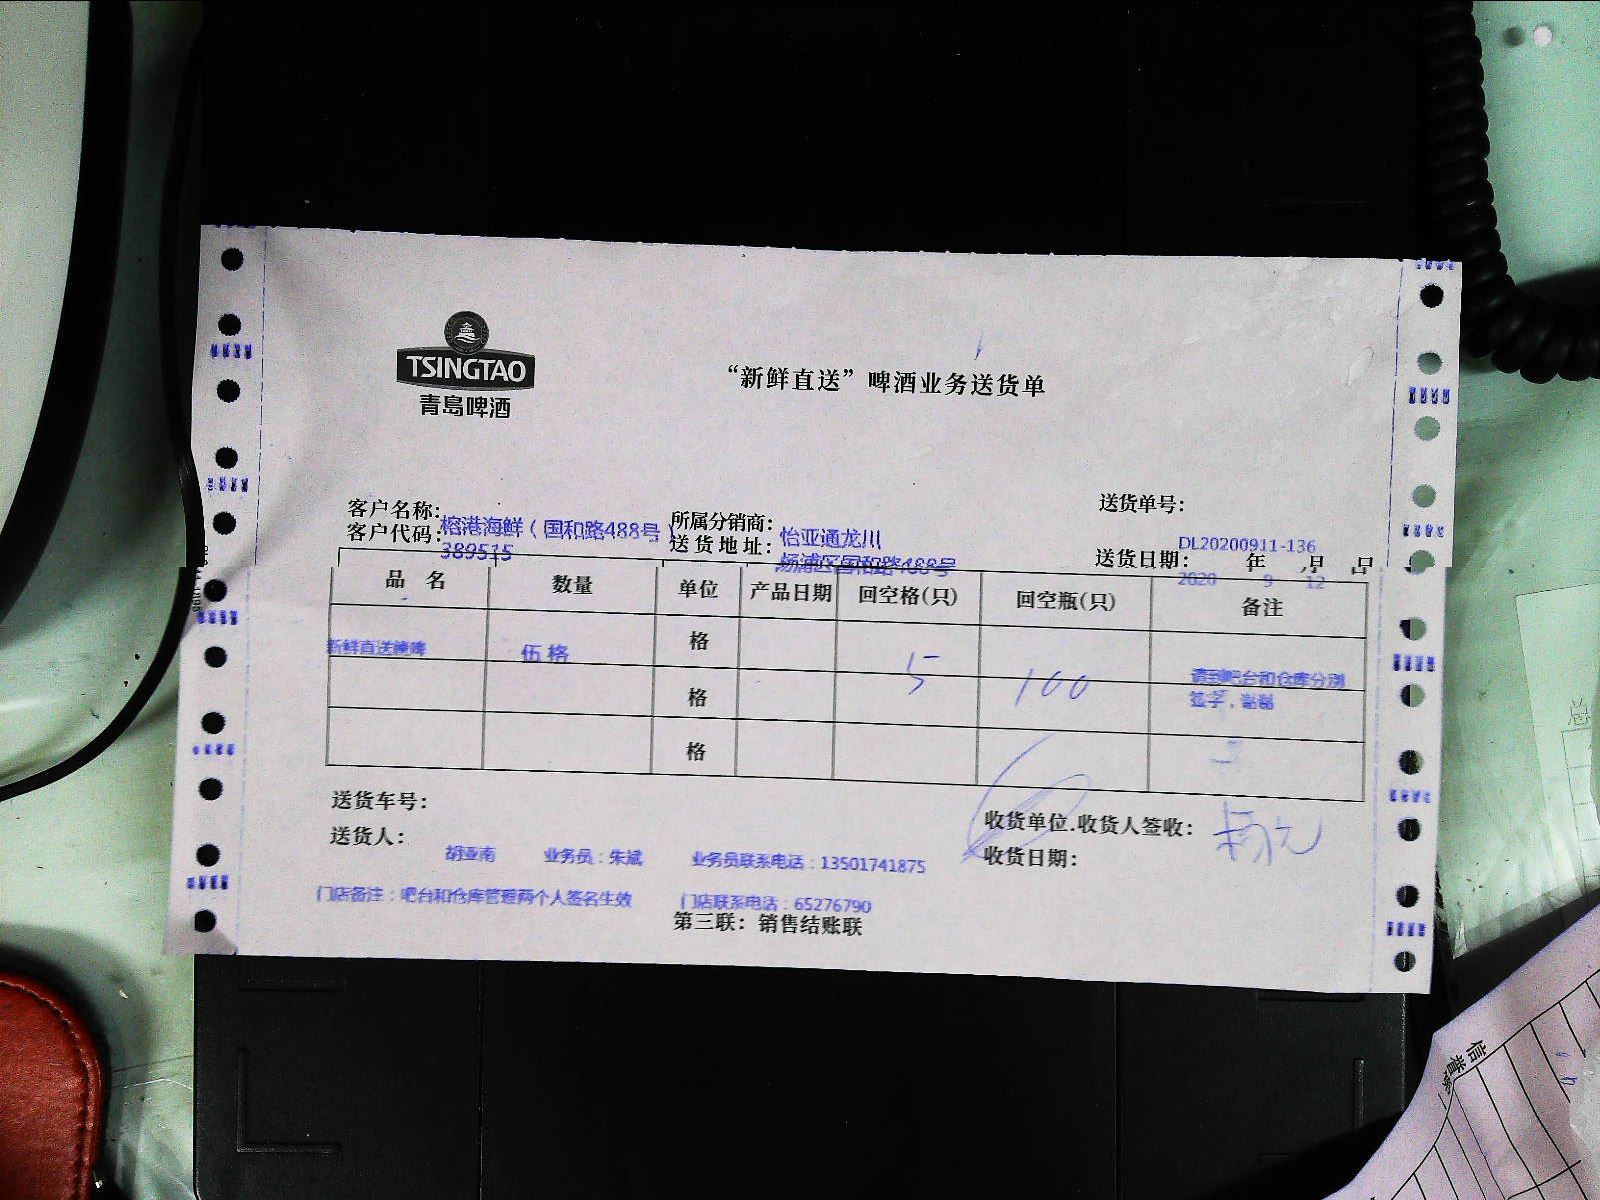 TSINGTAO
青岛啤酒
“新鲜直送”啤酒业务送货单
送货单号：
DL20200911-136
客户名称：榕港海鲜（国和路488号）
所属分销商：怡亚通龙川
客户代码：389515
送货地址：杨浦区国和路488号
送货日期： 年 月 日
2020 9 12
品名 数量 单位 产品日期 回空格(只) 回空瓶(只) 备注
新鲜直送 伍格 格 5 100 请到吧台和仓库分别
签字，谢谢
格
格
送货车号：
收货单位.收货人签收：
送货人：胡亚南 业务员：朱斌 业务员联系电话：13501741875
收货日期：
门店备注：吧台和仓库管理两个人签名生效 门店联系电话：65276790
第三联：销售结账联
信誉